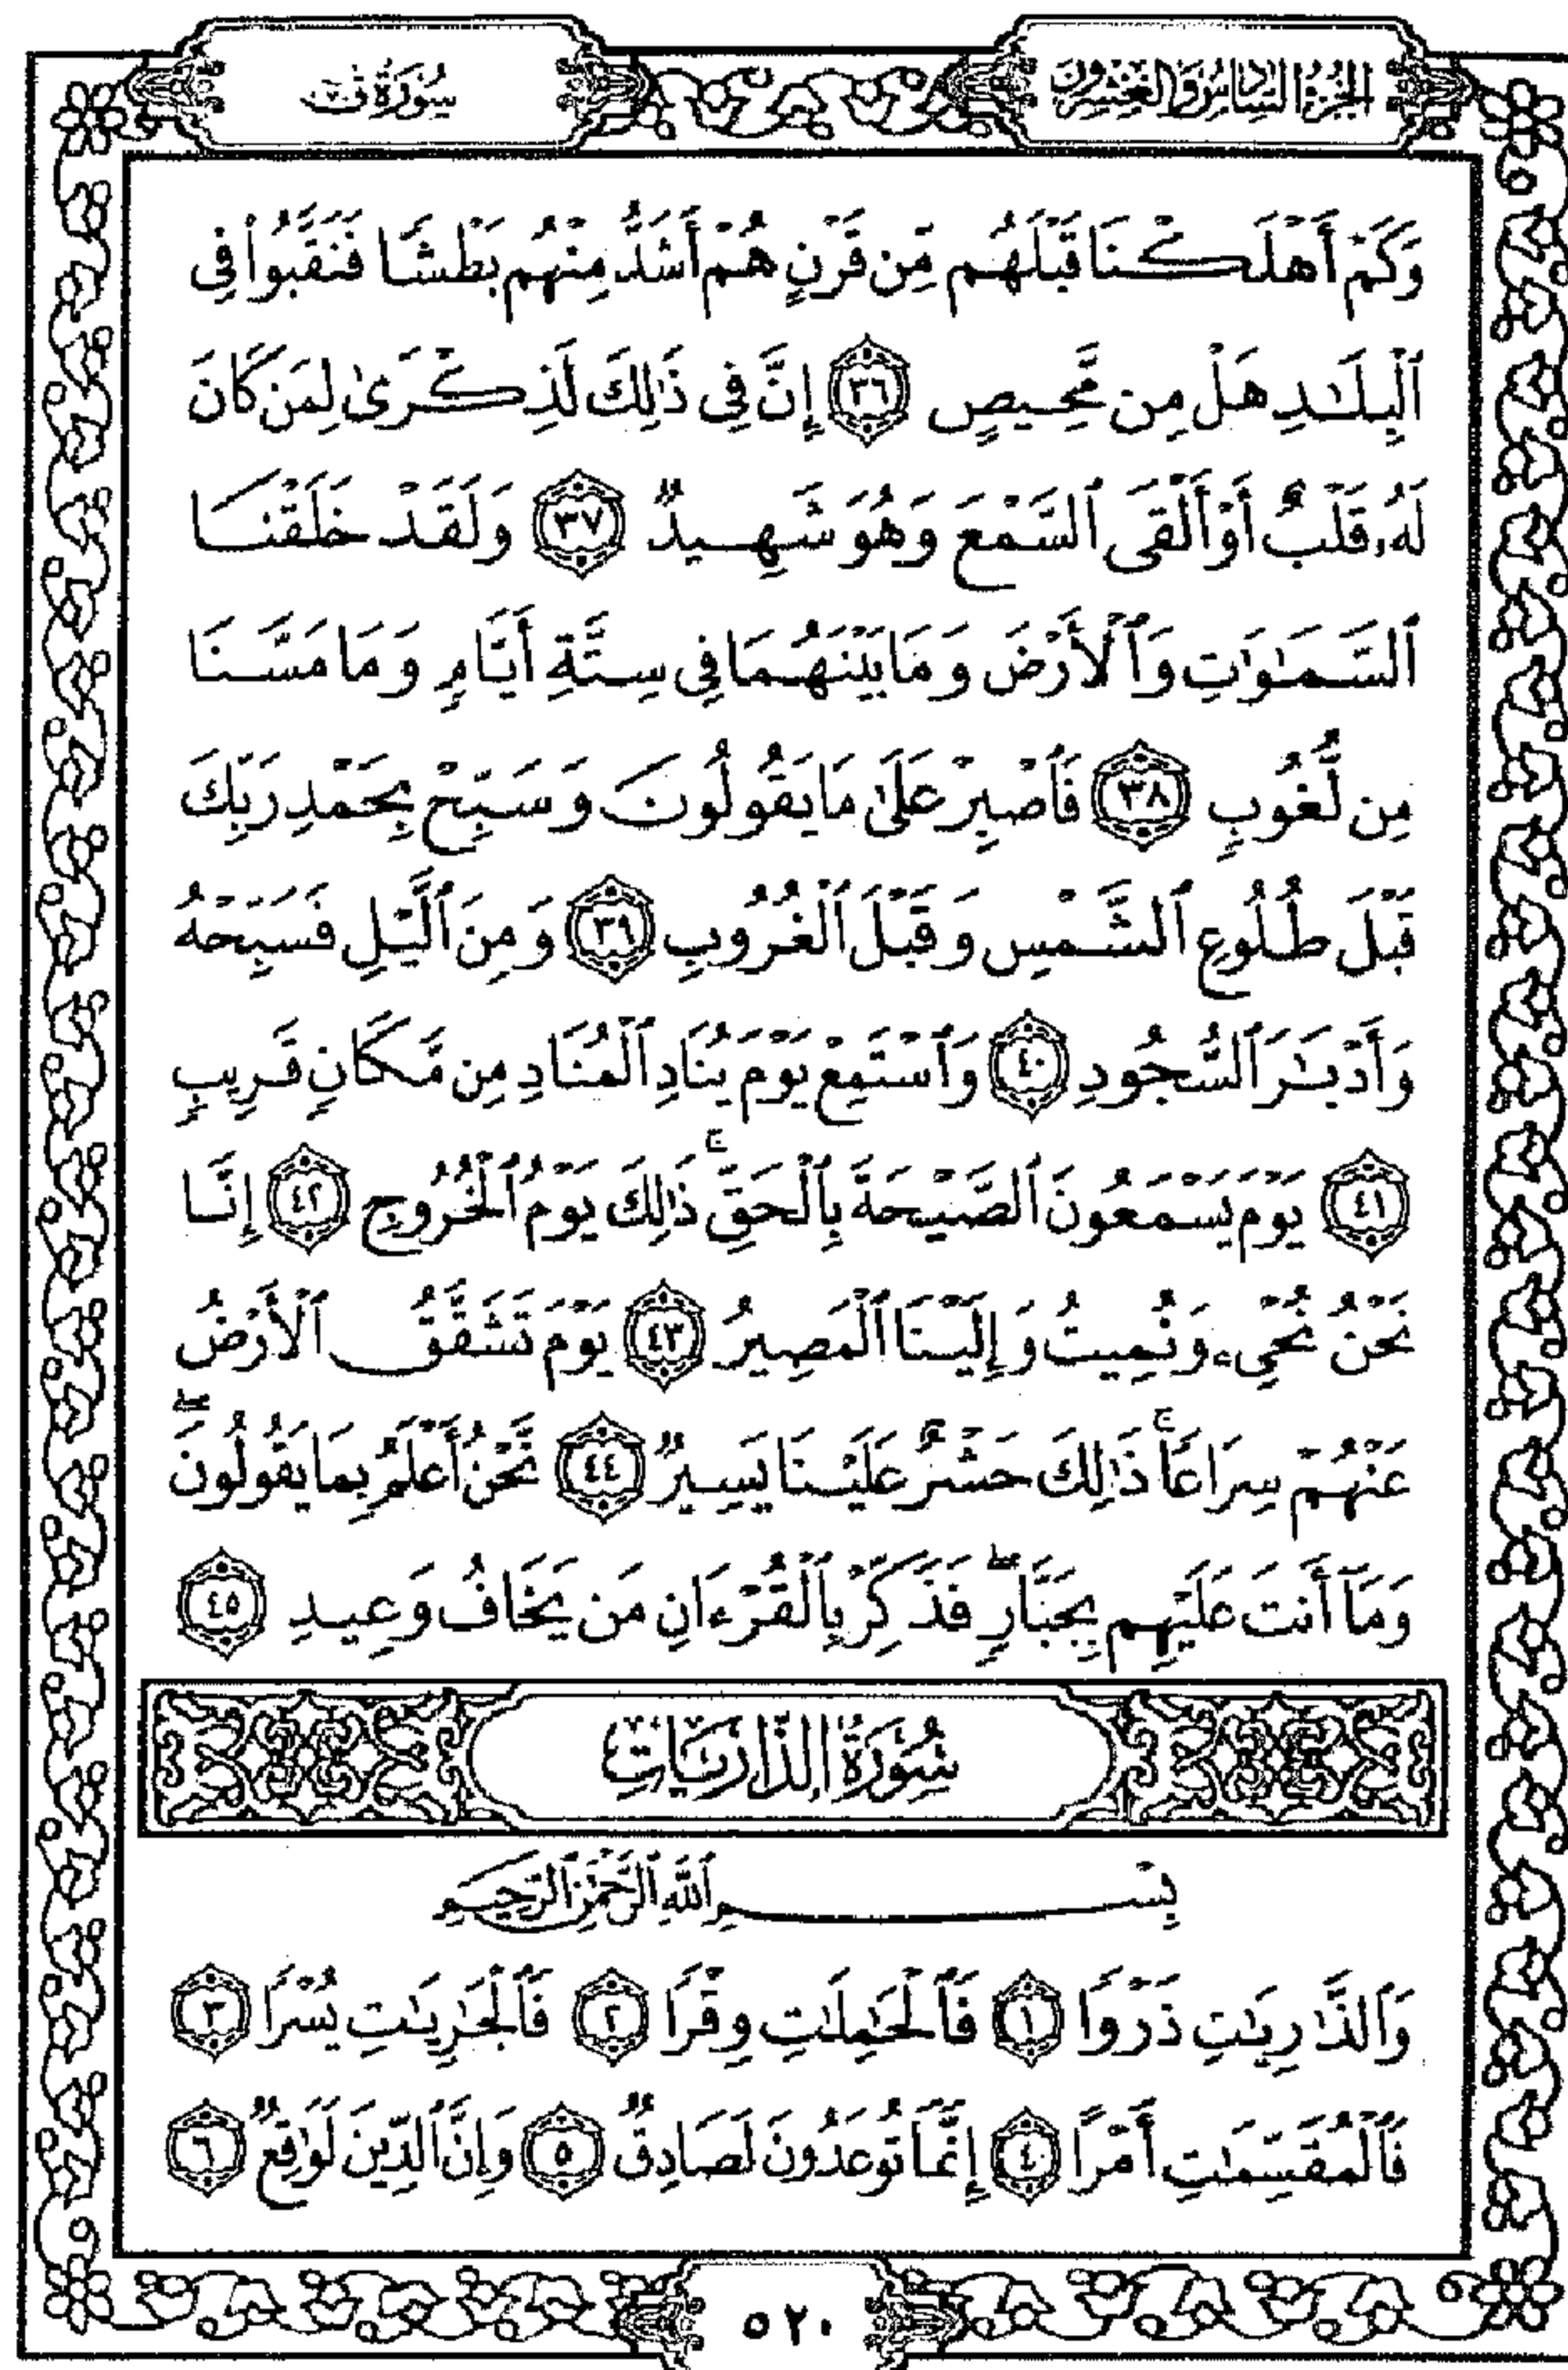 الجزء السادس والعشرون
سورة ق
وَكَمْ أَهْلَكْنَا قَبْلَهُم مِّن قَرْنٍ هُمْ أَشَدُّ مِنْهُم بَطْشًا فَنَقَّبُوا۟ فِى
ٱلْبِلَٰدِ هَلْ مِن مَّحِيصٍ ٣٦ إِنَّ فِى ذَٰلِكَ لَذِكْرَىٰ لِمَن كَانَ
لَهُۥ قَلْبٌ أَوْ أَلْقَى ٱلسَّمْعَ وَهُوَ شَهِيدٌ ٣٧ وَلَقَدْ خَلَقْنَا
ٱلسَّمَٰوَٰتِ وَٱلْأَرْضَ وَمَا بَيْنَهُمَا فِى سِتَّةِ أَيَّامٍ وَمَا مَسَّنَا
مِن لُّغُوبٍ ٣٨ فَٱصْبِرْ عَلَىٰ مَا يَقُولُونَ وَسَبِّحْ بِحَمْدِ رَبِّكَ
قَبْلَ طُلُوعِ ٱلشَّمْسِ وَقَبْلَ ٱلْغُرُوبِ ٣٩ وَمِنَ ٱلَّيْلِ فَسَبِّحْهُ
وَأَدْبَٰرَ ٱلسُّجُودِ ٤٠ وَٱسْتَمِعْ يَوْمَ يُنَادِ ٱلْمُنَادِ مِن مَّكَانٍ قَرِيبٍ
٤١ يَوْمَ يَسْمَعُونَ ٱلصَّيْحَةَ بِٱلْحَقِّ ۚ ذَٰلِكَ يَوْمُ ٱلْخُرُوجِ ٤٢ إِنَّا
نَحْنُ نُحْىِۦ وَنُمِيتُ وَإِلَيْنَا ٱلْمَصِيرُ ٤٣ يَوْمَ تَشَقَّقُ ٱلْأَرْضُ
عَنْهُمْ سِرَاعًا ۚ ذَٰلِكَ حَشْرٌ عَلَيْنَا يَسِيرٌ ٤٤ نَّحْنُ أَعْلَمُ بِمَا يَقُولُونَ ۖ
وَمَآ أَنتَ عَلَيْهِم بِجَبَّارٍ ۖ فَذَكِّرْ بِٱلْقُرْءَانِ مَن يَخَافُ وَعِيدِ ٤٥
سُورَةُ الذَّارِيَاتِ
بِسْمِ ٱللَّهِ ٱلرَّحْمَٰنِ ٱلرَّحِيمِ
وَٱلذَّٰرِيَٰتِ ذَرْوًا ١ فَٱلْحَٰمِلَٰتِ وِقْرًا ٢ فَٱلْجَٰرِيَٰتِ يُسْرًا ٣
فَٱلْمُقَسِّمَٰتِ أَمْرًا ٤ إِنَّمَا تُوعَدُونَ لَصَادِقٌ ٥ وَإِنَّ ٱلدِّينَ لَوَٰقِعٌ ٦
٥٢٠